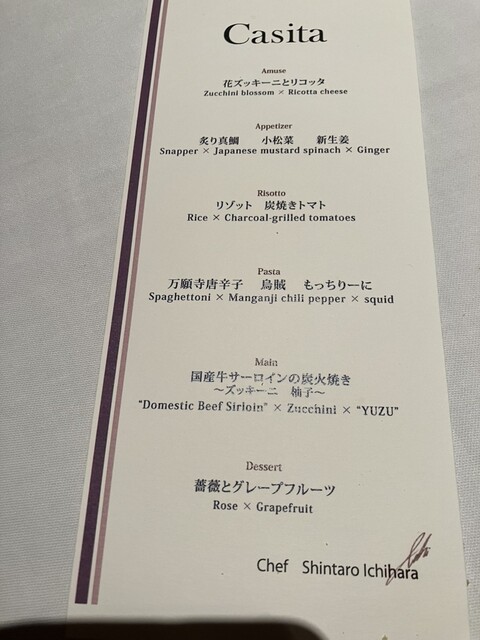 Casita
Amuse
花ズッキーニとリコッタ
Zucchini blossom × Ricotta cheese
Appetizer
炙り真鯛　小松菜　新生姜
Snapper × Japanese mustard spinach × Ginger
Risotto
リゾット　炭焼きトマト
Rice × Charcoal-grilled tomatoes
Pasta
万願寺唐辛子　烏賊　もっちりーに
Spaghettoni × Manganji chili pepper × squid
Main
国産牛サーロインの炭火焼き
～ズッキーニ　柚子～
“Domestic Beef Sirloin” × Zucchini × “YUZU”
Dessert
薔薇とグレープフルーツ
Rose × Grapefruit
Chef Shintaro Ichihara